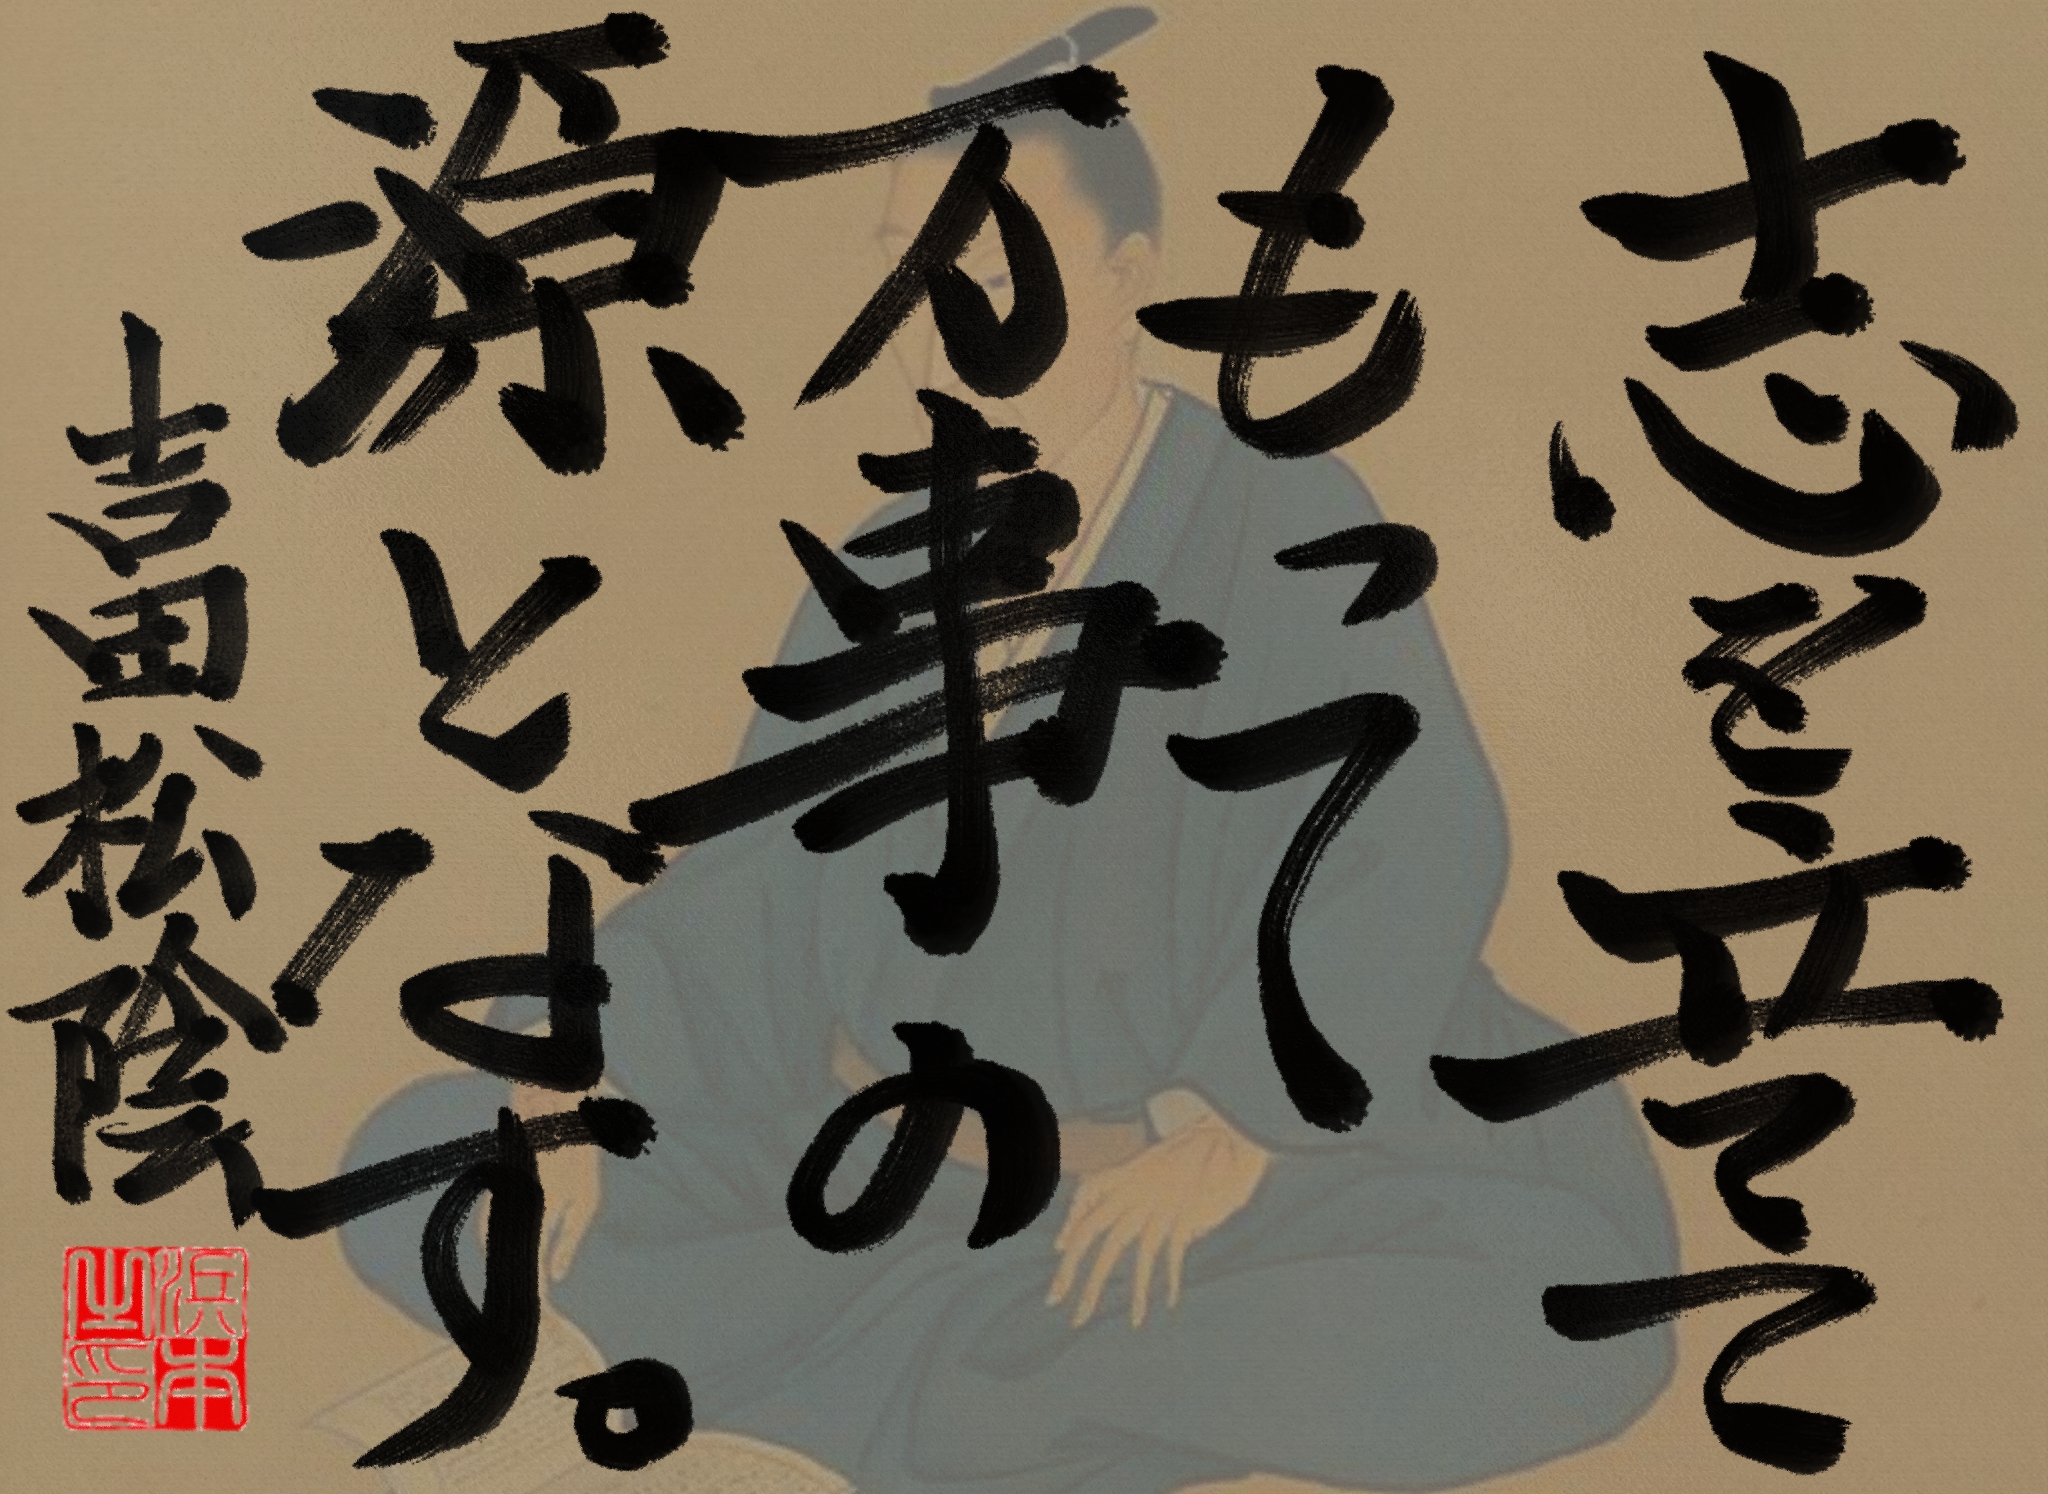 志を立てて
もって
万事の
源となす。
吉田松陰
浜本
之印